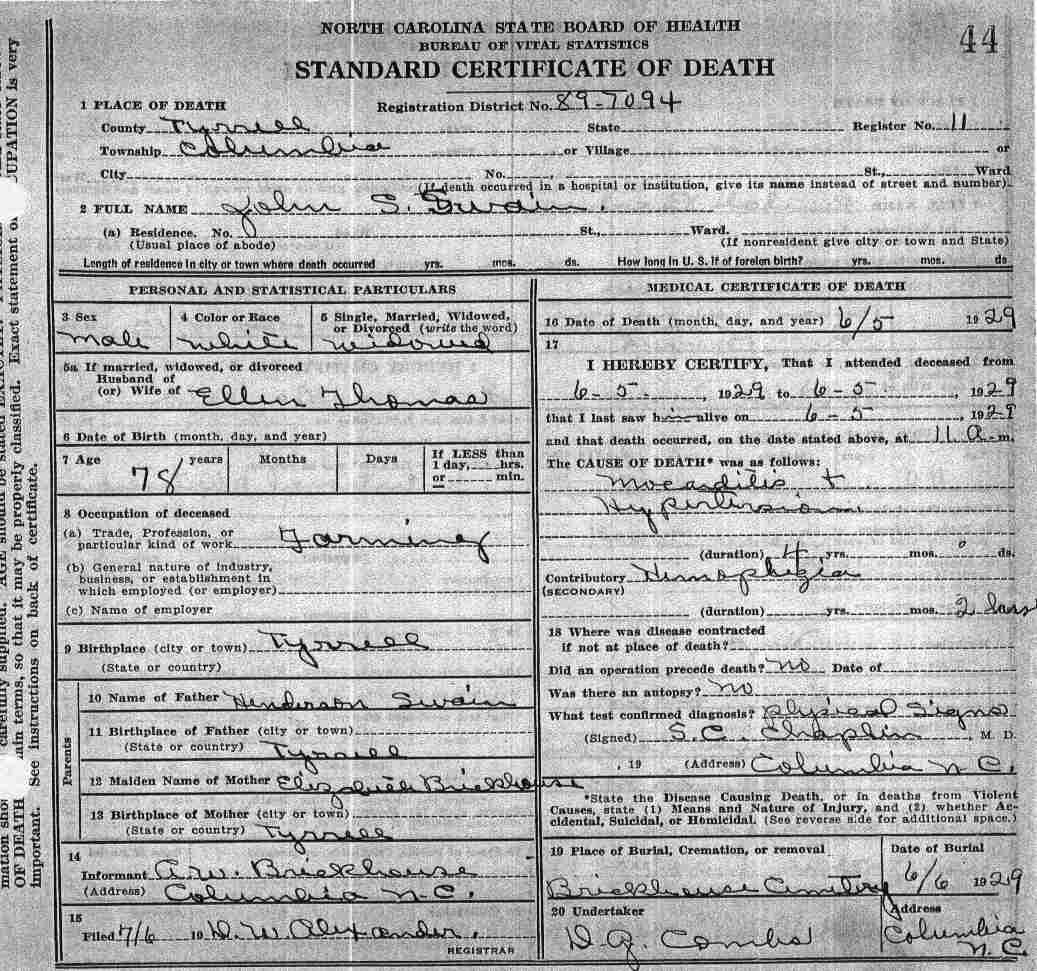 NORTH CAROLINA STATE BOARD OF HEALTH
BUREAU OF VITAL STATISTICS
44
STANDARD CERTIFICATE OF DEATH
1 PLACE OF DEATH Registration District No. 89-7094
County Tyrrell State Register No. 11
Township Columbia or Village or
City No. , St., Ward
(If death occurred in a hospital or institution, give its name instead of street and number)
2 FULL NAME John S. Swain.
(a) Residence. No. St., Ward.
(Usual place of abode) (If nonresident give city or town and State)
Length of residence in city or town where death occurred yrs. mos. ds. How long in U. S. if of foreign birth? yrs. mos. ds
PERSONAL AND STATISTICAL PARTICULARS
3 Sex 4 Color or Race 5 Single, Married, Widowed,
or Divorced (write the word)
male white widowed
5a If married, widowed, or divorced
Husband of
(or) Wife of Ellen Thomas
6 Date of Birth (month, day, and year)
7 Age 78 years Months Days If LESS than
1 day, hrs.
or min.
8 Occupation of deceased
(a) Trade, Profession, or
particular kind of work Farming
(b) General nature of industry,
business, or establishment in
which employed (or employer)
(c) Name of employer
9 Birthplace (city or town) Tyrrell
(State or country)
Parents
10 Name of Father Henderson Swain
11 Birthplace of Father (city or town)
(State or country) Tyrrell
12 Maiden Name of Mother Elizabeth Brickhouse
13 Birthplace of Mother (city or town)
(State or country) Tyrrell
14
Informant A.W. Brickhouse
(Address) Columbia N.C.
15
Filed 7/6 19 D. W. Alexander.
REGISTRAR
MEDICAL CERTIFICATE OF DEATH
16 Date of Death (month, day, and year) 6/5 1929
17
I HEREBY CERTIFY, That I attended deceased from
6-5 , 1929 to 6-5 , 1929
that I last saw him alive on 6-5 , 1929
and that death occurred, on the date stated above, at 11 a.m.
The CAUSE OF DEATH* was as follows:
Mocarditis +
Hypertension
(duration) 4 yrs. mos. ds.
Contributory Himophegia
(SECONDARY)
(duration) yrs. mos. 2 days
18 Where was disease contracted
if not at place of death?
Did an operation precede death? No Date of
Was there an autopsy? No
What test confirmed diagnosis? Physical Signs
(Signed) S.C. Chaplin , M. D.
, 19 (Address) Columbia N.C.
*State the Disease Causing Death, or in deaths from Violent
Causes, state (1) Means and Nature of Injury, and (2) whether Ac-
cidental, Suicidal, or Homicidal. (See reverse side for additional space.)
19 Place of Burial, Cremation, or removal Date of Burial
Brickhouse Cemetery 6/6 1929
20 Undertaker Address
D. G. Combs Columbia
N.C.
carefully supplied. AGE should be stated
OF DEATH ain terms, so that it may be properly classified. Exact statement of CUPATION is very
important. See instructions on back of certificate.